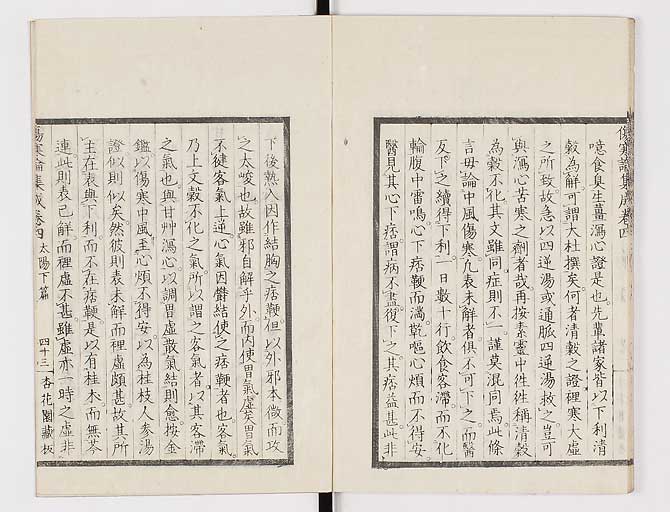 傷寒論集成卷四
噫食臭生薑瀉心證是也先輩諸家皆以下利清
穀為解可謂大杜撰矣何者清穀之證裡寒大虛
之所致故急以四逆湯或通脈四逆湯救之豈可
與瀉心苦寒之劑者哉再按素靈中往往稱清穀
為穀不化其文雖同症則不一謹莫混同焉此條
言毋論中風傷寒凡表未解者俱不可下之而醫
反下之續得下利一日數十行飲食客滯而不化
輪腹中雷鳴心下痞鞕而滿乾嘔心煩而不得安
醫見其心下痞謂病不盡復下之其痞益甚此非
下後熱入因作結胸之痞鞕但以外邪本微而攻
之太峻也故雖邪自解乎外而內使胃氣虛矣胃氣
不健客氣上逆心氣因鬱結使之痞鞕者也客氣
乃上文穀不化之氣所以謂之客氣者以其客滯
之氣也與甘艸瀉心以調胃虛散氣結則愈按金
鑑以傷寒中風至心煩不得安以為桂枝人參湯
證似則似矣然彼則表未解而裡虛頗甚故其所
主在表與下利而不在痞鞕是以有桂朮而無芩
連此則表已解而裡虛不甚雖虛亦一時之虛非
傷寒論集成卷四 太陽下篇 四十三 杏花園藏板